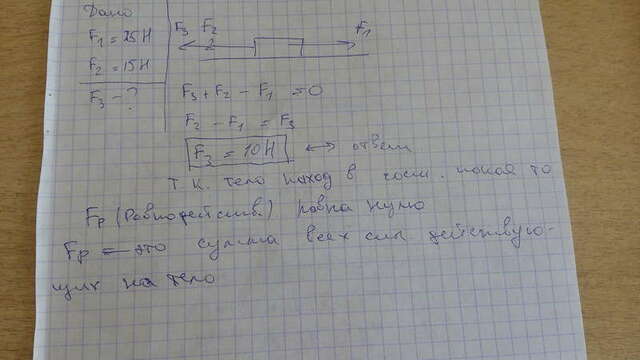 Дано
F₁ = 25 Н
F₂ = 15 Н
F₃ - ?
F₃ F₂ F₁
F₃ + F₂ - F₁ = 0
F₂ - F₁ = F₃
F₃ = 10 Н ↔ ответ
т.к. тело наход в сост. покоя то
Fр (Равнодейств.) равна нулю
Fр — это сумма всех сил действую-
щих на тело